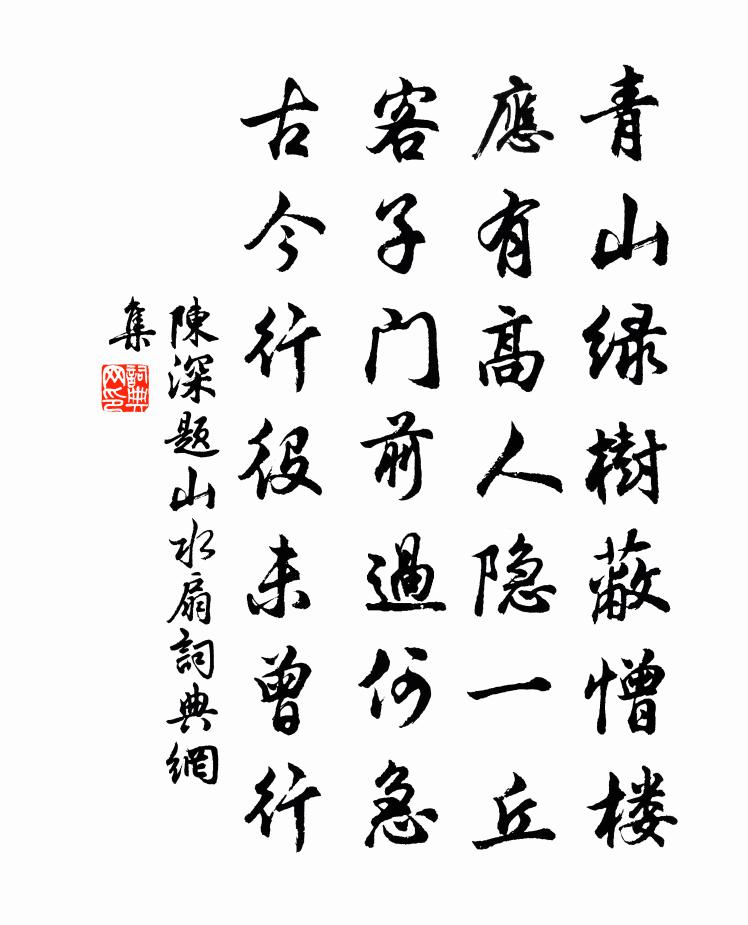 青山緑樹蔽憎楼
應有高人隐一丘
客子门前過何急
古今行役未曾行
陳深题山水扇詞典網
集
詞典网印